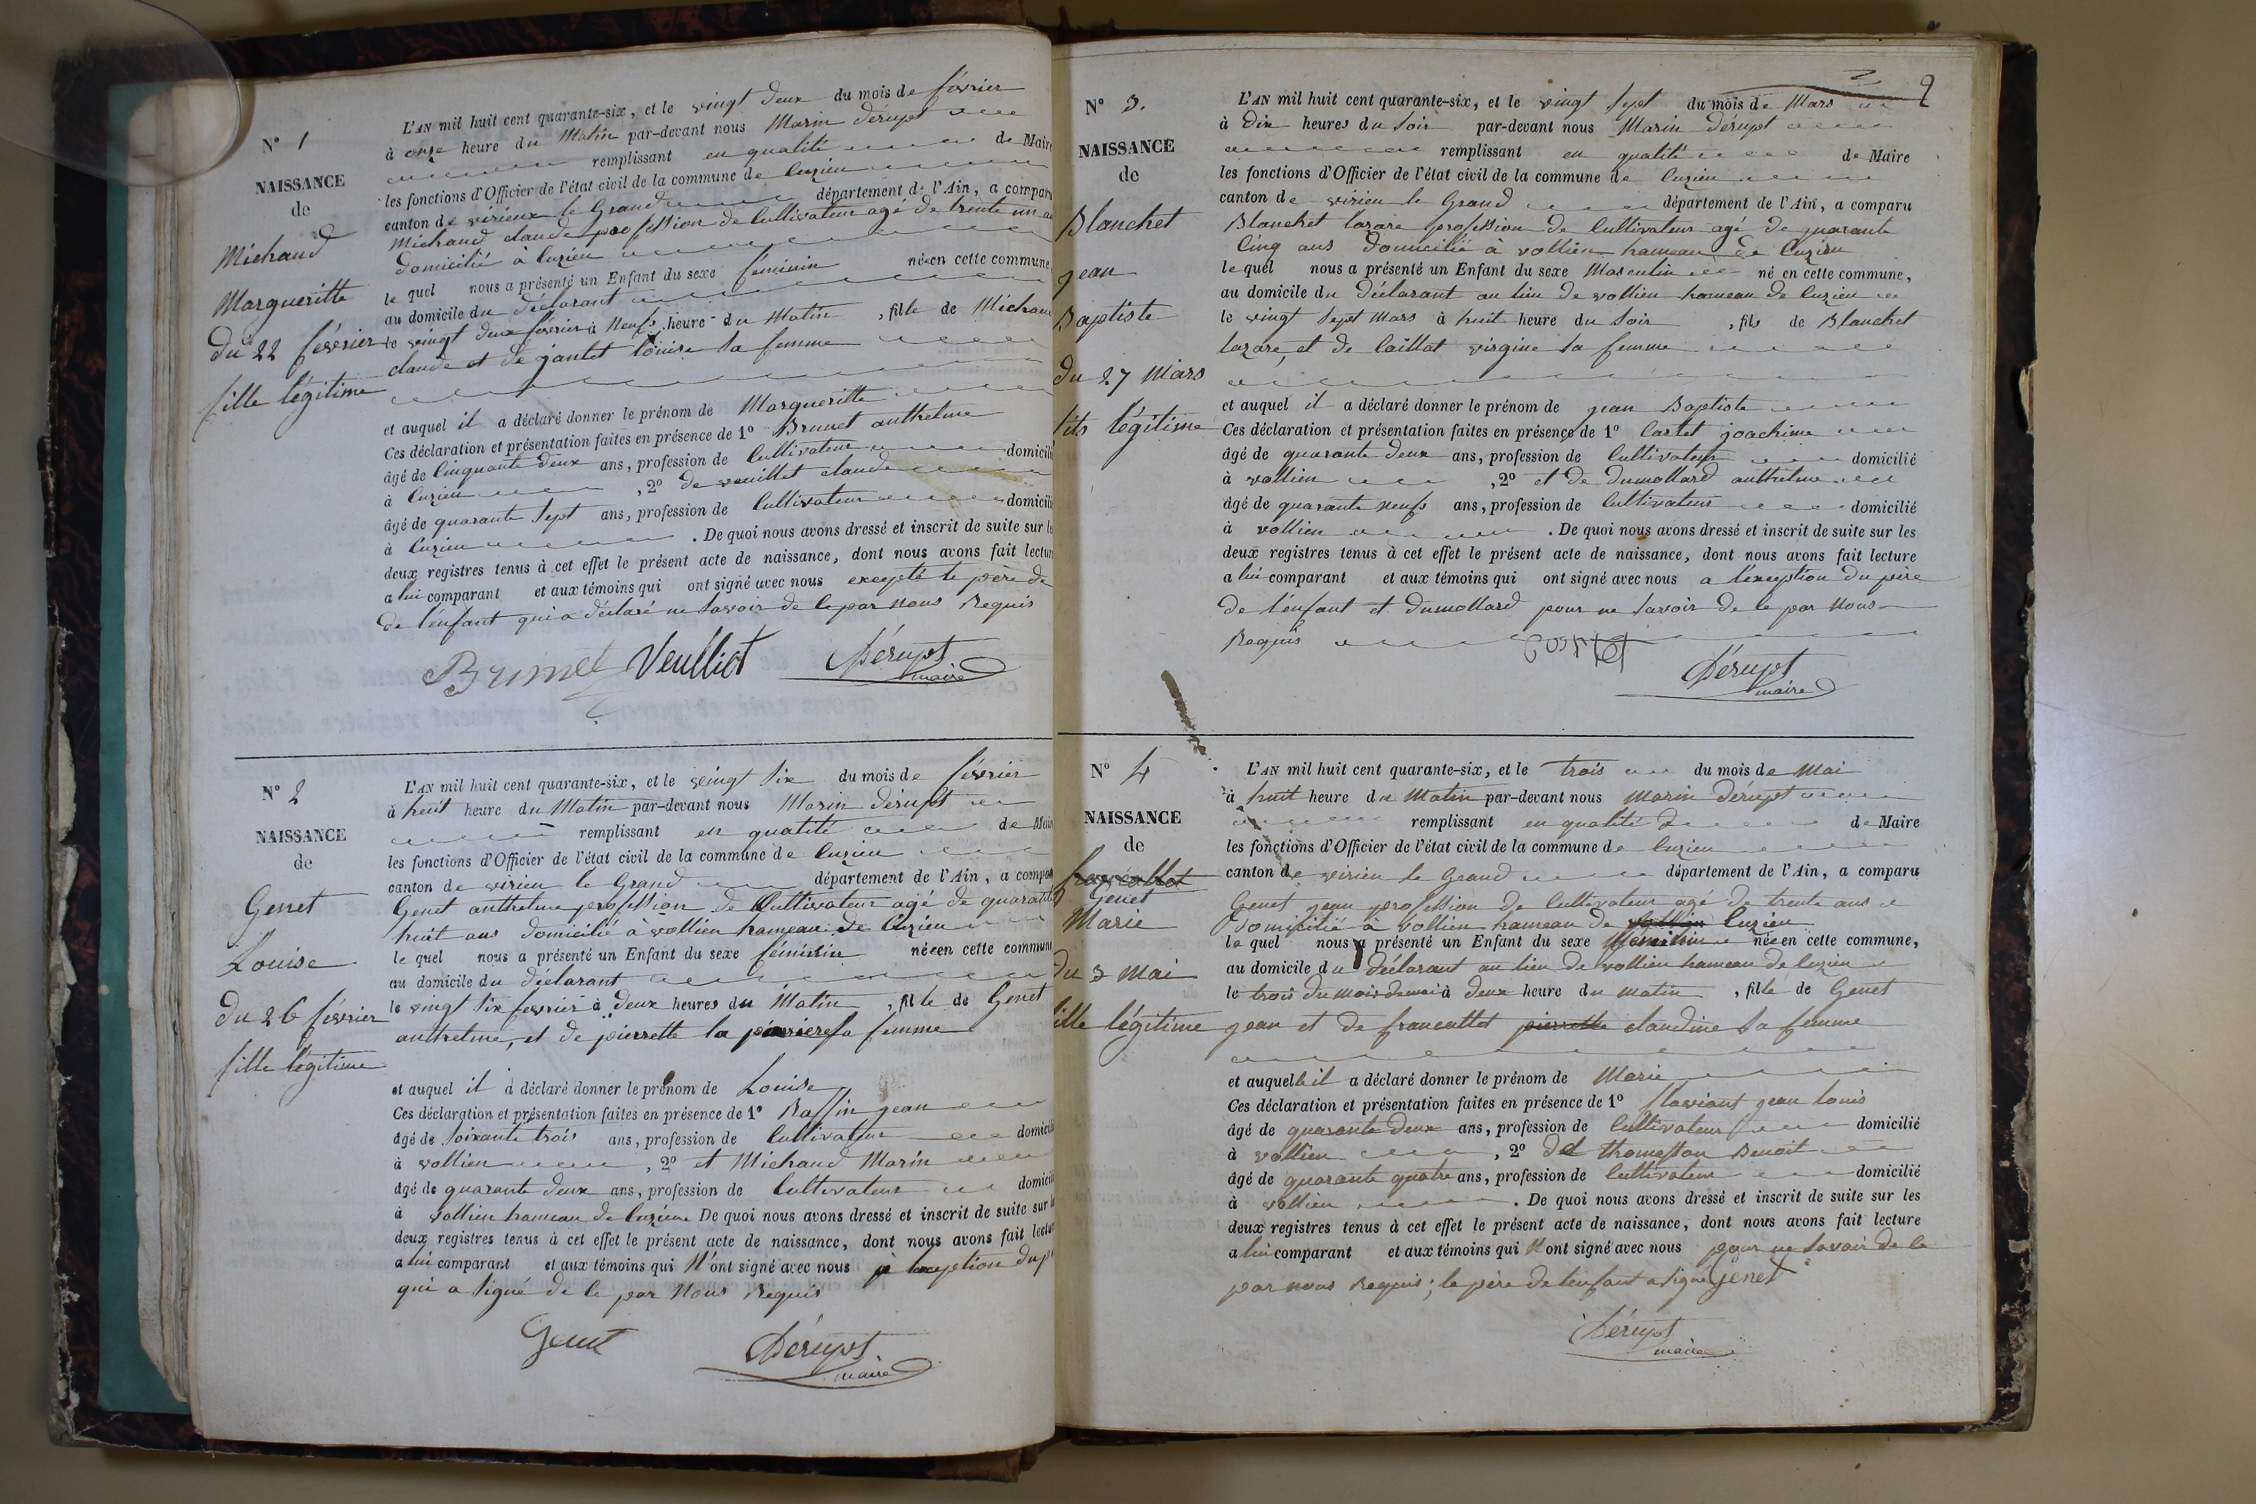 N° 1
NAISSANCE
de
Michaud
Margueritte
du 22 février
fille légitime
L'AN mil huit cent quarante-six, et le vingt deux du mois de février
à onze heure du Matin par-devant nous Marin dérupt
remplissant en qualité de Maire
les fonctions d'Officier de l'état civil de la commune de Cuzieu
canton de virieux le Grand département de l'Ain, a comparu
Michaud claude profession de Cultivateur agé de trente un
domicilié à Cuzieu
le quel nous a présenté un Enfant du sexe féminin née en cette commune,
au domicile du déclarant
le vingt deux février à Neufs heure du Matin, fille de Michaud
claude et de jantet louise sa femme
et auquel il a déclaré donner le prénom de Margueritte
Ces déclaration et présentation faites en présence de 1° Brunet anthelme
âgé de Cinquante deux ans, profession de Cultivateur domicilié
à Cuzieu, 2° de veuillet claude
âgé de quarante sept ans, profession de Cultivateur domicilié
à Cuzieu. De quoi nous avons dressé et inscrit de suite sur les
deux registres tenus à cet effet le présent acte de naissance, dont nous avons fait lecture
a lui comparant et aux témoins qui ont signé avec nous excepté le père de
de l'enfant qui a déclaré ne savoir de le par nous Requis
Brunet Veulliet Dérupt
maire
N° 2
NAISSANCE
de
Genet
Louise
du 26 février
fille légitime
L'AN mil huit cent quarante-six, et le veingt six du mois de février
à huit heure du Matin par-devant nous Marin dérupt
remplissant en qualité de Maire
les fonctions d'Officier de l'état civil de la commune de Cuzieu
canton de virieu le Grand département de l'Ain, a comparu
Genet anthelme profession de Cultivateur agé de quarante
huit ans domicilié à vollien hameau de Cuzieu
le quel nous a présenté un Enfant du sexe féminin née en cette commune
au domicile du déclarant
le vingt six fevrier à deux heures du Matin, fille de Genet
anthelme, et de pierrette la sa femme
et auquel il a déclaré donner le prénom de Louise
Ces déclaration et présentation faites en présence de 1° Raffin jean
âgé de soixante trois ans, profession de Cultivateur domicilié
à vollien, 2° et Michaud Marin
âgé de quarante deux ans, profession de Cultivateur domicilié
à vollien hameau de Cuzieu De quoi nous avons dressé et inscrit de suite sur les
deux registres tenus à cet effet le présent acte de naissance, dont nous avons fait lecture
a lui comparant et aux témoins qui N'ont signé avec nous exception du
qui a signé de le par Nous Requis
Genet Dérupt
maire
2
N° 3.
NAISSANCE
de
Blanchet
jean
Baptiste
du 27 Mars
fils légitime
L'AN mil huit cent quarante-six, et le vingt sept du mois de Mars
à Dix heures du Soir par-devant nous Marin dérupt
remplissant en qualité de Maire
les fonctions d'Officier de l'état civil de la commune de Cuzieu
canton de virieu le Grand département de l'Ain, a comparu
Blanchet lazare profession de Cultivateur agé de quarante
Cinq ans domicilié à vollien hameau de Cuzieu
le quel nous a présenté un Enfant du sexe Masculin né en cette commune,
au domicile du déclarant au lieu de vollien hameau de Cuzieu
le vingt sept Mars à huit heure du Soir, fils de Blanchet
lazare, et de Caillat virgine sa femme
et auquel il a déclaré donner le prénom de jean Baptiste
Ces déclaration et présentation faites en présence de 1° Cartet joachime
âgé de quarante deux ans, profession de Cultivateur domicilié
à vollien, 2° et de dumollard anthelme
âgé de quarante neufs ans, profession de Cultivateur domicilié
à vollien. De quoi nous avons dressé et inscrit de suite sur les
deux registres tenus à cet effet le présent acte de naissance, dont nous avons fait lecture
a lui comparant et aux témoins qui ont signé avec nous a l'exception du pere
de l'enfant et dumollard pour ne savoir de le par nous
Requis
Dérupt
maire
N° 4
NAISSANCE
de
francallet
Genet
Marie
du 3 Mai
fille légitime
L'AN mil huit cent quarante-six, et le trois du mois de Mai
à huit heure du Matin par-devant nous Marin dérupt
remplissant en qualité de de Maire
les fonctions d'Officier de l'état civil de la commune de Cuzieu
canton de virieu le Grand département de l'Ain, a comparu
Genet jean profession de Cultivateur agé de trente ans
domicilié à vollien hameau de vollien Cuzieu
le quel nous a présenté un Enfant du sexe féminin née en cette commune,
au domicile du déclarant au lieu de vollien hameau de Cuzieu
le trois du mois de mai à deux heure du matin, fille de Genet
jean et de francallet pierrette claudine sa femme
et auquelle il a déclaré donner le prénom de Marie
Ces déclaration et présentation faites en présence de 1° flaviant jean louis
âgé de quarante deux ans, profession de Cultivateur domicilié
à vollien, 2° de thomasson Benoit
âgé de quarante quatre ans, profession de Cultivateur domicilié
à vollien. De quoi nous avons dressé et inscrit de suite sur les
deux registres tenus à cet effet le présent acte de naissance, dont nous avons fait lecture
a lui comparant et aux témoins qui N'ont signé avec nous pour ne savoir de le
par nous Requis ; le père de lenfant a signé Genet
Dérupt
maire